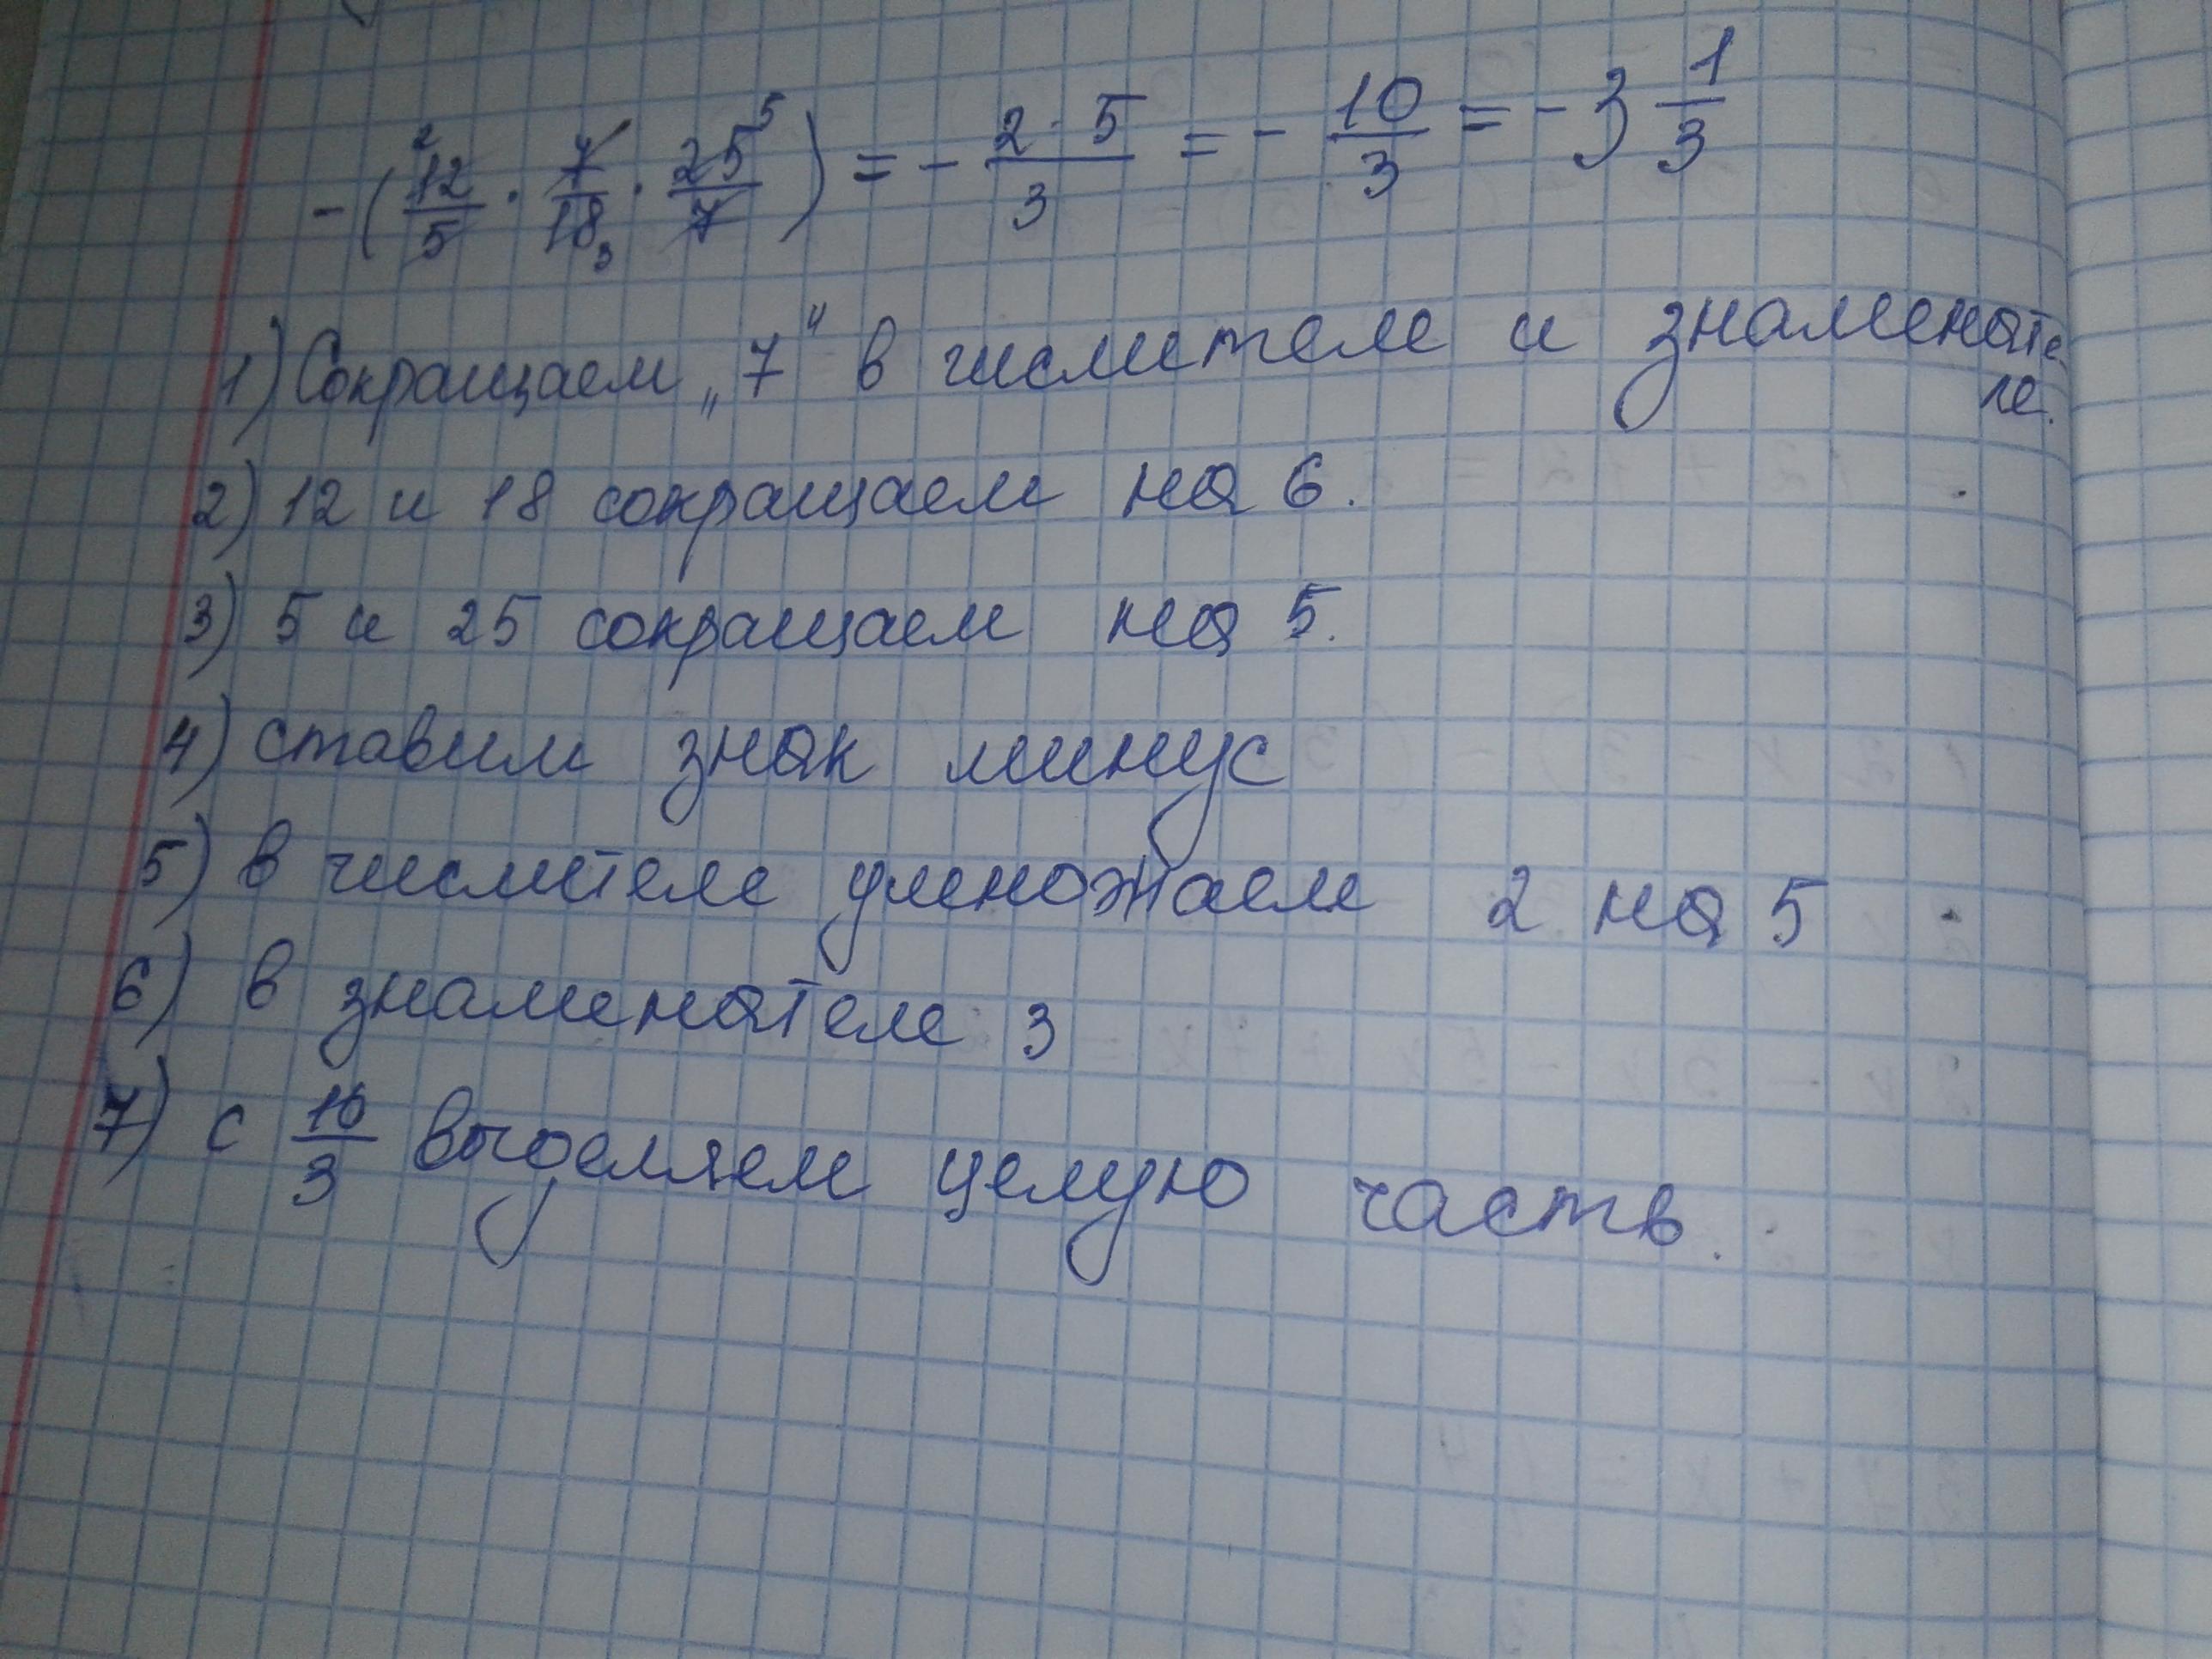 -(²12/5 · 7/18₃ · 25⁵/7) = - 2·5/3 = - 10/3 = - 3 1/3
1) Сокращаем „7" в числителе и знаменате
ле.
2) 12 и 18 сокращаем на 6.
3) 5 и 25 сокращаем на 5.
4) ставим знак минус
5) в числителе умножаем 2 на 5
6) в знаменателе 3
7) с 10/3 выделяем целую часть.